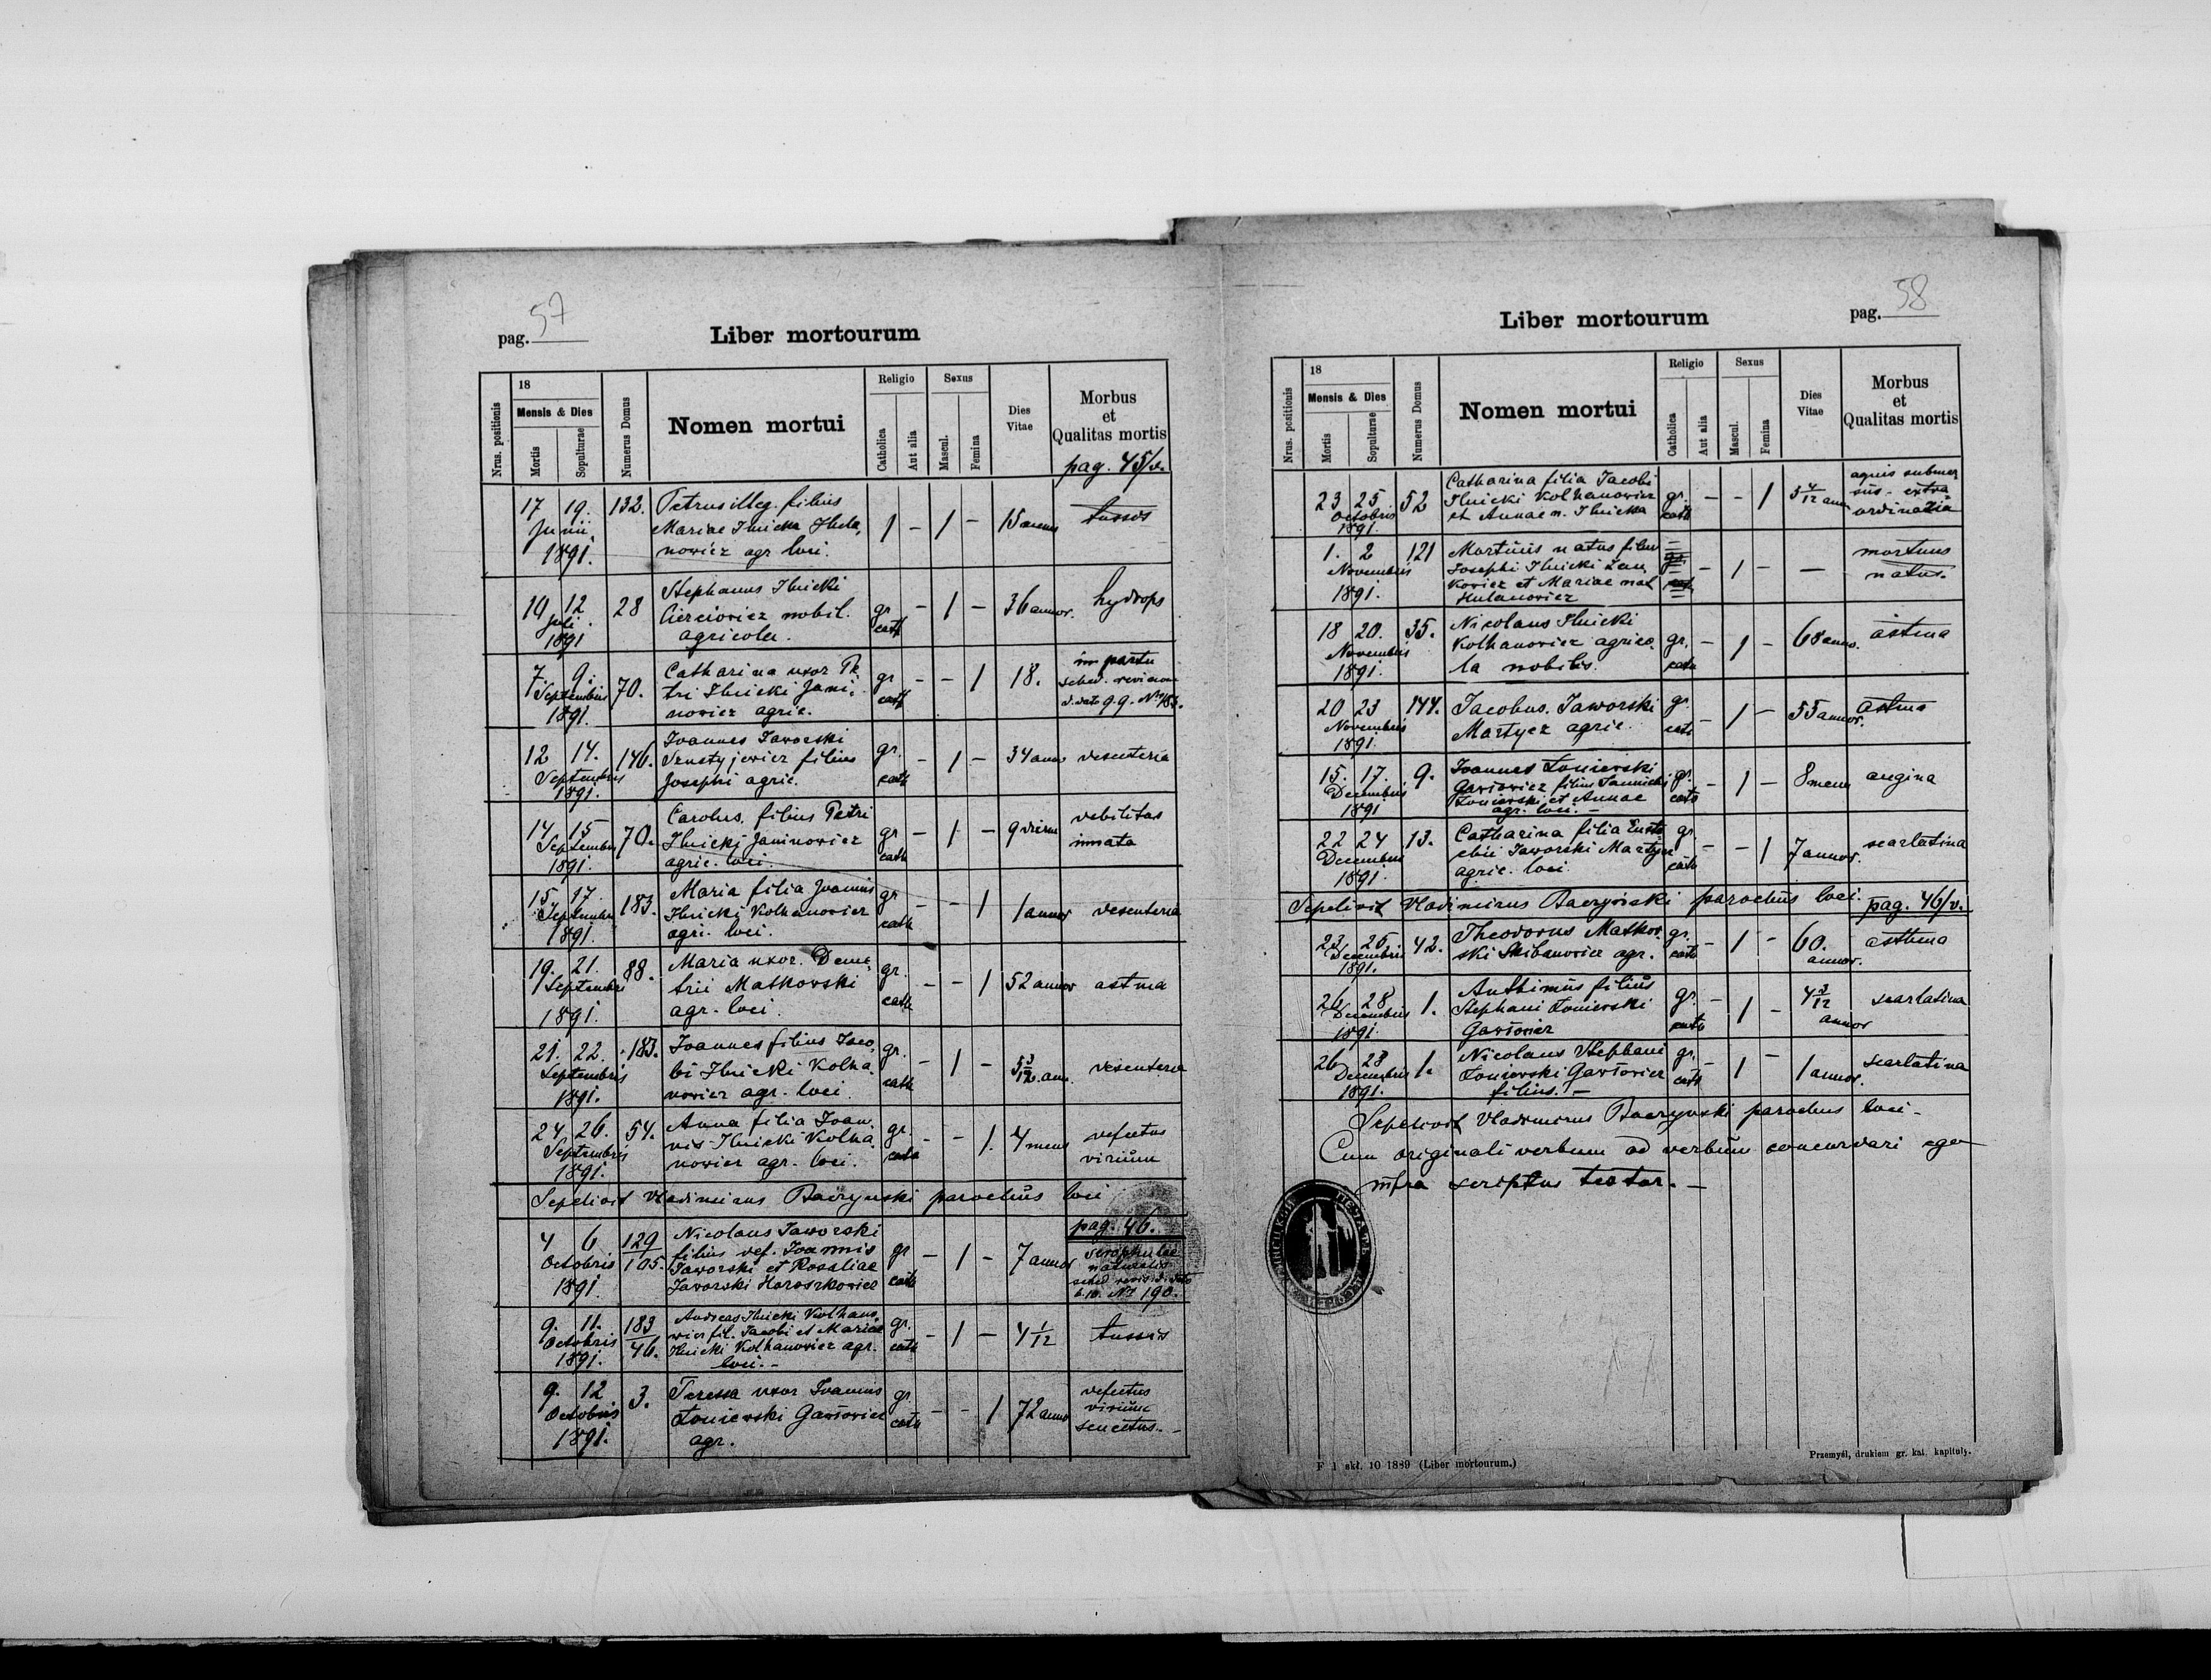 pag. 57
Liber mortourum
Nrus. positionis
18
Mensis & Dies
Mortis
Sepulturae
Numerus Domus
Nomen mortui
Religio
Catholica
Aut alia
Sexus
Mascul.
Femina
Dies
Vitae
Morbus
et
Qualitas mortis
pag. 45/v.
17 19. 132. Petrus illeg. filius
Junii Mariae Ilnicka Hula, 1 - 1 - 15 annus tussis
1891. nowicz agr. loci.
Stephanus Ilnicki
10 12 28 Cierciowicz nobil. gr. - 1 - 36 annor. hydrops
Juli agricola. cath
1891
7. 9. 70. Catharina uxor Pe gr - - 1 18. in partu
Septembris tri Ilnicki Jani, cath sched. revision
1891. nowicz agric. d. dato 9.9. No 183.
12 14. 146. Ioannes Jaworski gr.
Septembris filius - 1 - 34 anno desenteria
1891. Josephi agric. cath
14 15 70. Carolus, filius Petri
Septembris Ilnicki Janinowicz gr - 1 - 9 dierum debilitas
1891. agric. loci. cath innata
15. 17 183. Maria filia Joannis gr
Septembris Ilnicki Kolhanowicz - - 1 1 annor desenteria
1891. agri. loci. cath
19. 21. 88. Maria uxor Deme, gr.
Septembris trii Matkowski - - 1 52 annor astma
1891. agr. loci. cath
21. 22. 183. Joannes filius Jaco, gr.
Septembris bi Ilnicki Kolha, - 1 - 5 3/12 ann. desenteria
1891. nowicz agr. loci. cath
24 26. 54. Anna filia Joan, gr.
Septembris nis Ilnicki Kolha, - - 1. 4 mens defectus
1891. nowicz agr. loci. cath virium
Sepelivit Vladimirus Baczynski parochus loci
pag. 46.
4 6 129/105. Nicolaus Jaworski
Octobris filius def. Joannis gr - 1 - 7 annor scrophulae
1891. Jaworski et Rosaliae naturalis
Jaworski Horoszkowicz cath No 190.
9. 11. 183/46. Andreas Ilnicki Kolhano,
Octobris wicz fil. Jacobi et Mariae gr. - 1 - 4 1/12 tussis
1891. Ilnicki Kolhanowicz agr. cath
loci.-
9. 12 3. Teressa uxor Joannis gr. defectus
Octobris Loniewski Gawlowicz - - 1 72 anno virium
1891. agr. cath senectus.-
pag. 58
Liber mortourum
Nrus. positionis
18
Mensis & Dies
Mortis
Sepulturae
Numerus Domus
Nomen mortui
Religio
Catholica
Aut alia
Sexus
Mascul.
Femina
Dies
Vitae
Morbus
et
Qualitas mortis
Catharina filia Jacobi aquis submer
23 25 52 Ilnicki Kolhanowicz gr. - - 1 3 4/12 ann sus - extra
Octobris et Annae n. Ilnicka cath ordinatia
1891.
1. 2 121 Mortuus natus filius mortuus
Novembris Josephi Ilnicki - 1 - - natus.
1891. kowicz et Mariae nat
Hulanowicz
18 20. 35. Nicolaus Ilnicki
Novembris Kolhanowicz agrico, gr. - 1 - 68 anno. astma
1891. la nobilis. cath
20 23 144. Jacobus Jaworski gr.
Novembris Martycz agric. cath - 1 - 55 annor. astma
1891.
15. 17. 9. Joannes Loniewski
Decembris Gawlowicz filius Joannis gr. - 1 - 8 mens angina
1891 Loniewski et Annae cath
agr. loci.-
22 24 13. Catharina filia Eusta gr.
Decembris chii Jaworski Martycz - - 1 7 annor. scarlatina
1891. agric. loci cath
Sepelivit Vladimirus Baczynski parochus loci. pag. 46/v.
23 25 42. Theodorus Matkow, gr. - 1 - 60. asthma
Decembris ski Skibanowicz agr. cath annor.
1891.
26 28 1. Anthimus filius
Decembris Stephani Loniewski gr. - 1 - 4 3/12 scarlatina
1891. Gawlowicz cath annor
26 28 1. Nicolaus Stephani gr.
Decembris Loniewski Gawlowicz cath - 1 - 1 annor. scarlatina
1891. filius.-
Sepelivit Vladimirus Baczynski parochus loci-
Cum originali verbum ad verbum concordari ego
infra scriptus testor.-
F 1 skł. 10 1889 (Liber mortourum.)
Przemyśl, drukiem gr. kat. kapituły.